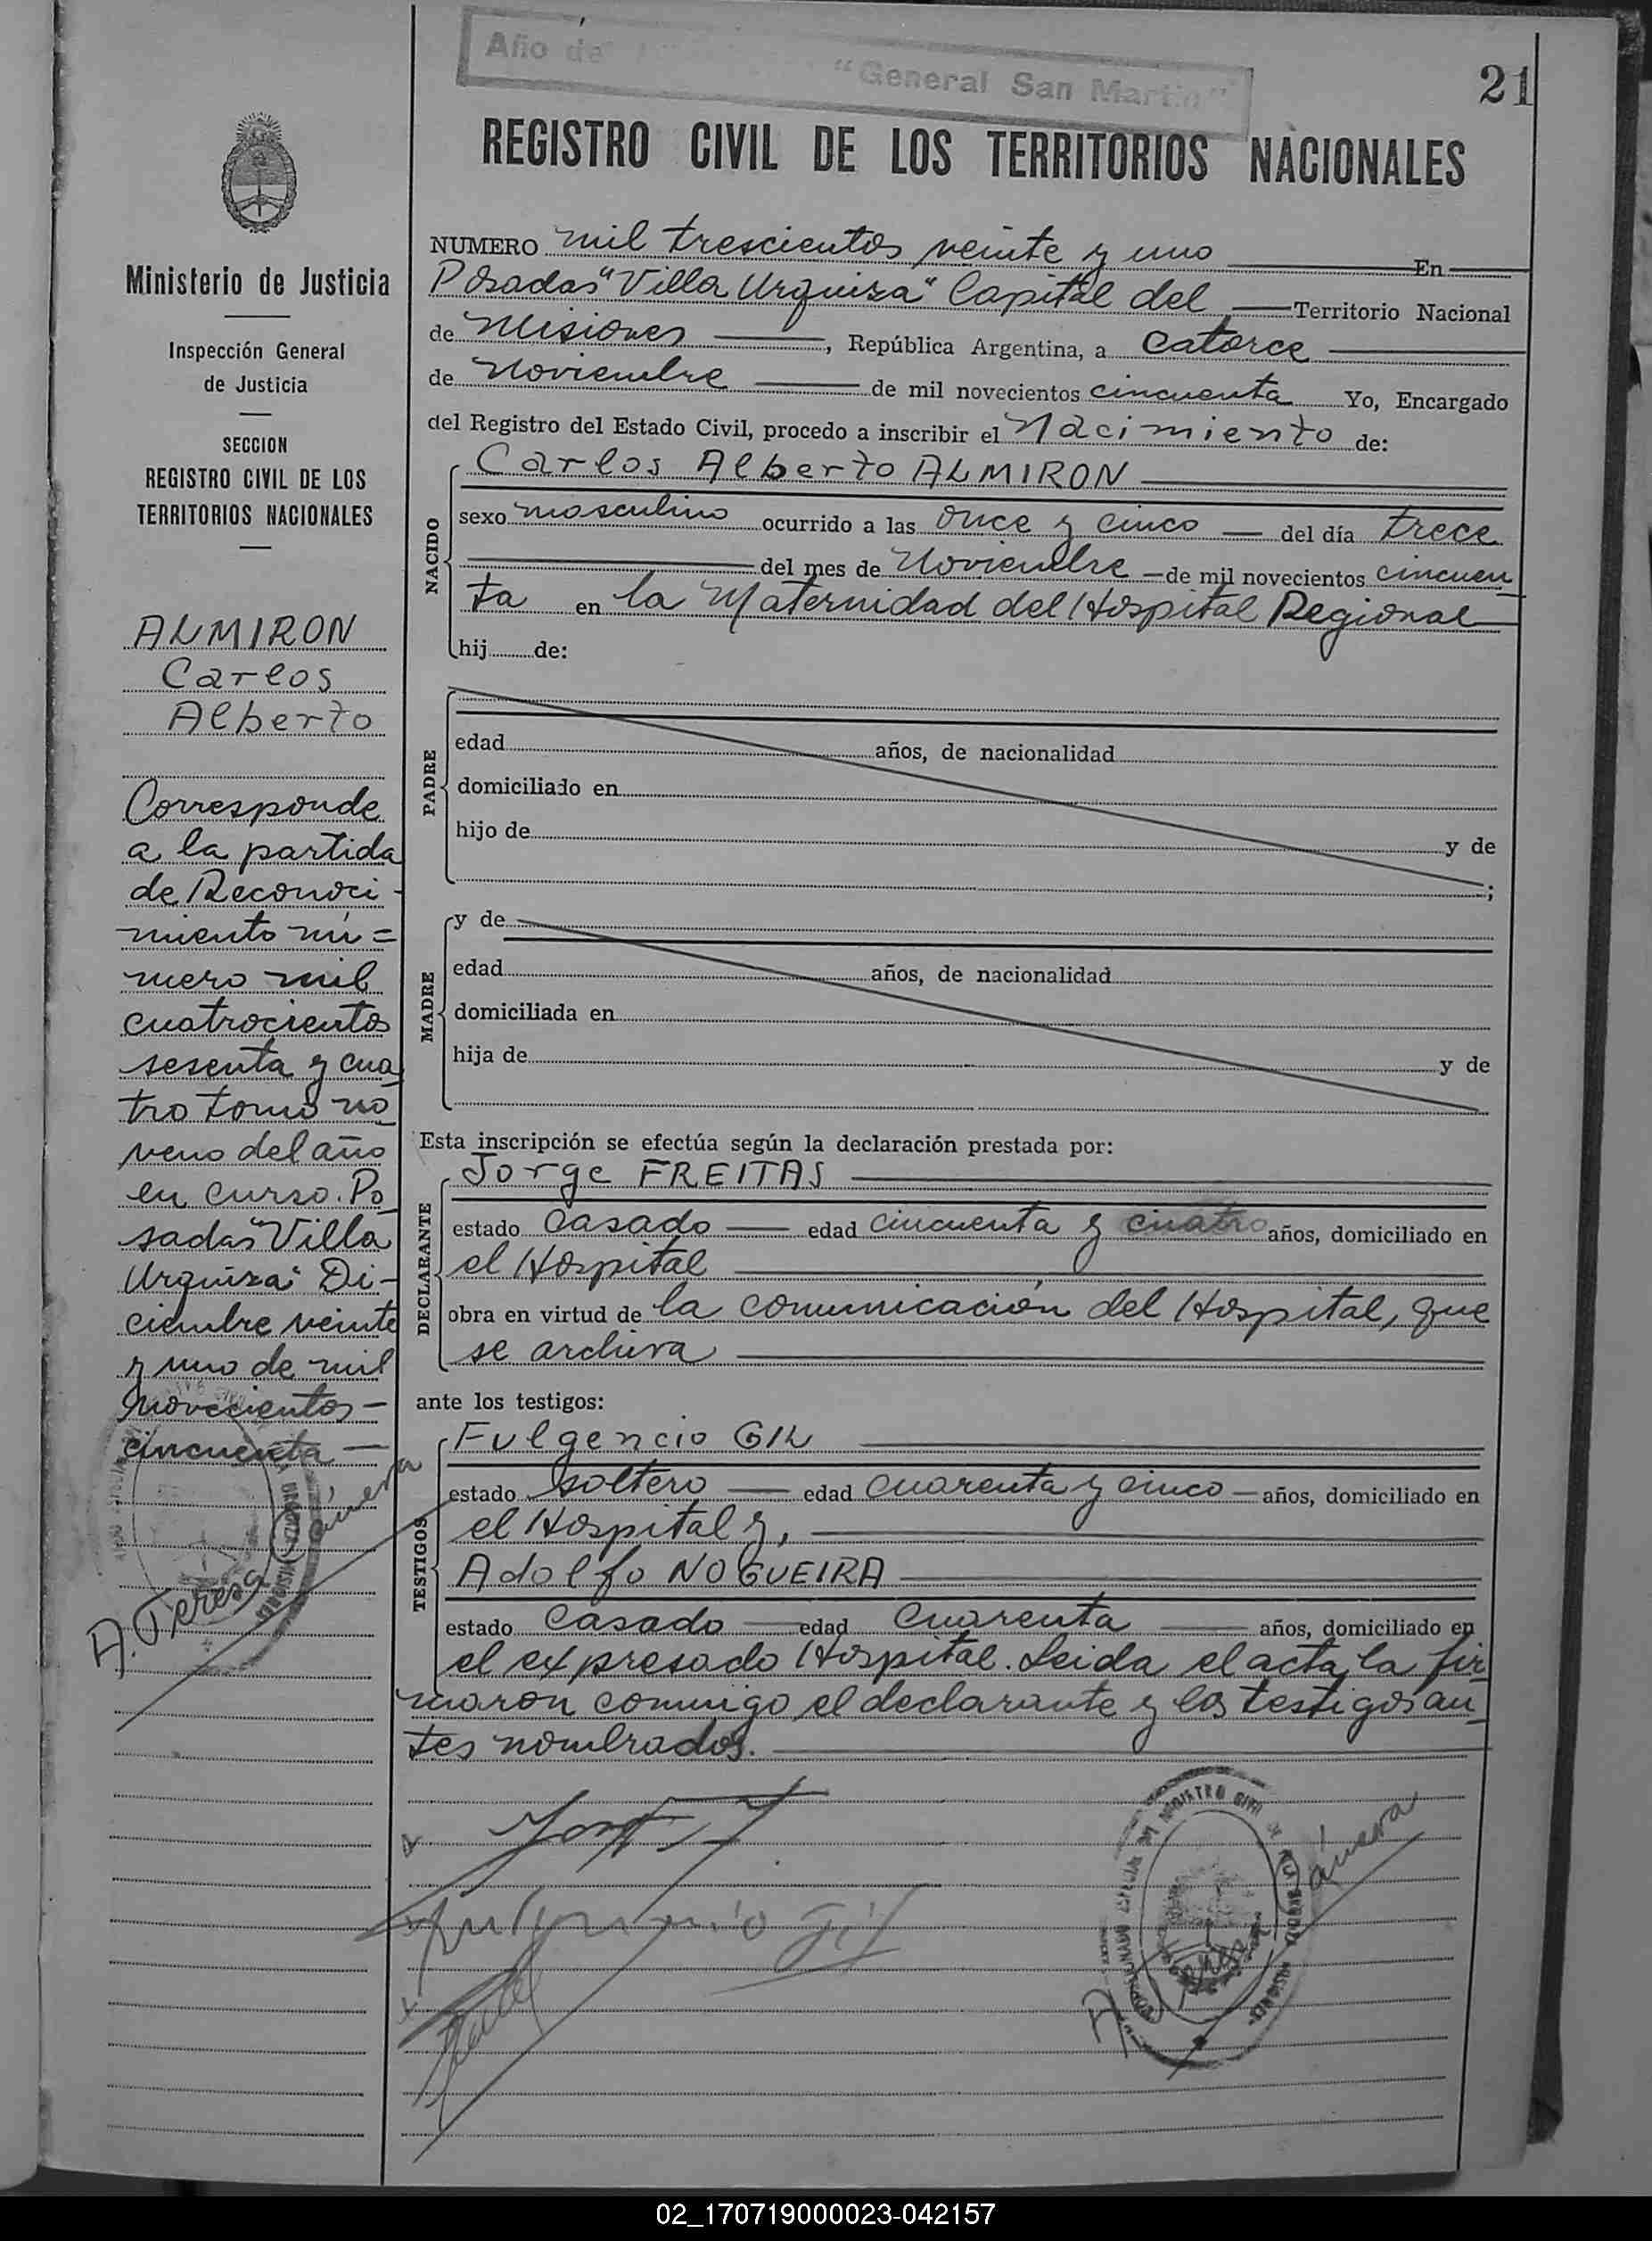 Año de
"General San Martín"
21
REGISTRO CIVIL DE LOS TERRITORIOS NACIONALES
Ministerio de Justicia
Inspección General
de Justicia
SECCION
REGISTRO CIVIL DE LOS
TERRITORIOS NACIONALES
ALMIRON
Carlos
Alberto
Corresponde
a la partida
de Reconoci-
miento nú=
mero mil
cuatrocientos
sesenta y cua
tro tomo no
veno del año
en curso. Po
sadas "Villa
Urquiza" Di-
ciembre veinte
y uno de mil
novecientos-
cincuenta
A. Teresa
NUMERO mil trescientos veinte y uno En
Posadas "Villa Urquiza" Capital del Territorio Nacional
de Misiones, República Argentina, a catorce
de Noviembre de mil novecientos cincuenta Yo, Encargado
del Registro del Estado Civil, procedo a inscribir el Nacimiento de:
NACIDO
Carlos Alberto ALMIRON
sexo masculino ocurrido a las once y cinco del día trece
del mes de Noviembre de mil novecientos cincuen
ta en la Maternidad del Hospital Regional
hij de:
PADRE
edad años, de nacionalidad
domiciliado en
hijo de y de
;
MADRE
y de
edad años, de nacionalidad
domiciliada en
hija de y de
Esta inscripción se efectúa según la declaración prestada por:
DECLARANTE
Jorge FREITAS
estado casado edad cincuenta y cuatro años, domiciliado en
el Hospital
obra en virtud de la comunicación del Hospital, que
se archiva
ante los testigos:
TESTIGOS
Fulgencio GIL
estado soltero edad cuarenta y cinco años, domiciliado en
el Hospital y,
Adolfo NOGUEIRA
estado casado edad cuarenta años, domiciliado en
el expresado Hospital. Leida el acta, la fir
maron conmigo el declarante y los testigos an
tes nombrados.
Fulgencio Gil
REGISTRO CIVIL
02_170719000023-042157